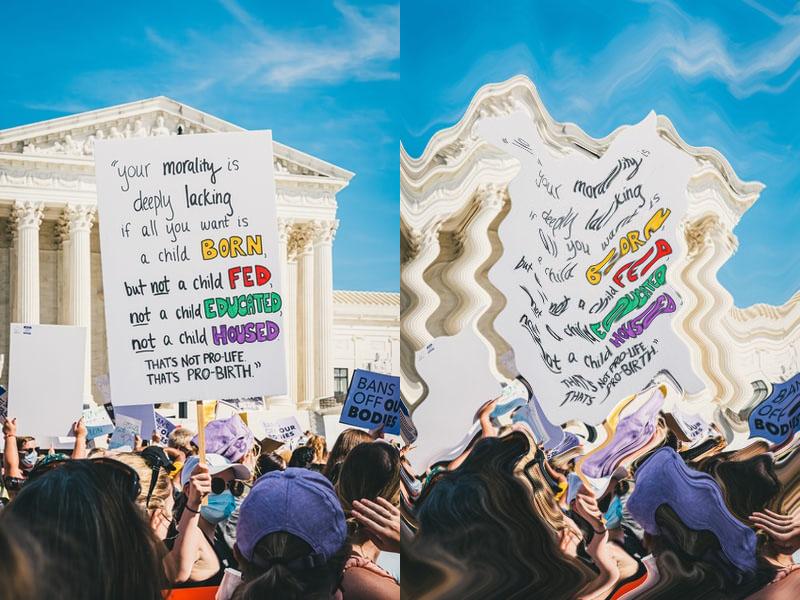 "your morality is
deeply lacking
if all you want is
a child BORN,
but not a child FED,
not a child EDUCATED,
not a child HOUSED
THAT'S NOT PRO-LIFE.
THAT'S PRO-BIRTH."
BANS
OFF OUR
BODIES
your morality is
deeply lacking
all you want is
a child BORN
but not a child FED
not a child EDUCATED
not a child HOUSED
THAT'S NOT PRO-LIFE.
THAT'S PRO-BIRTH."
BANS
OFF OUR
BODIES